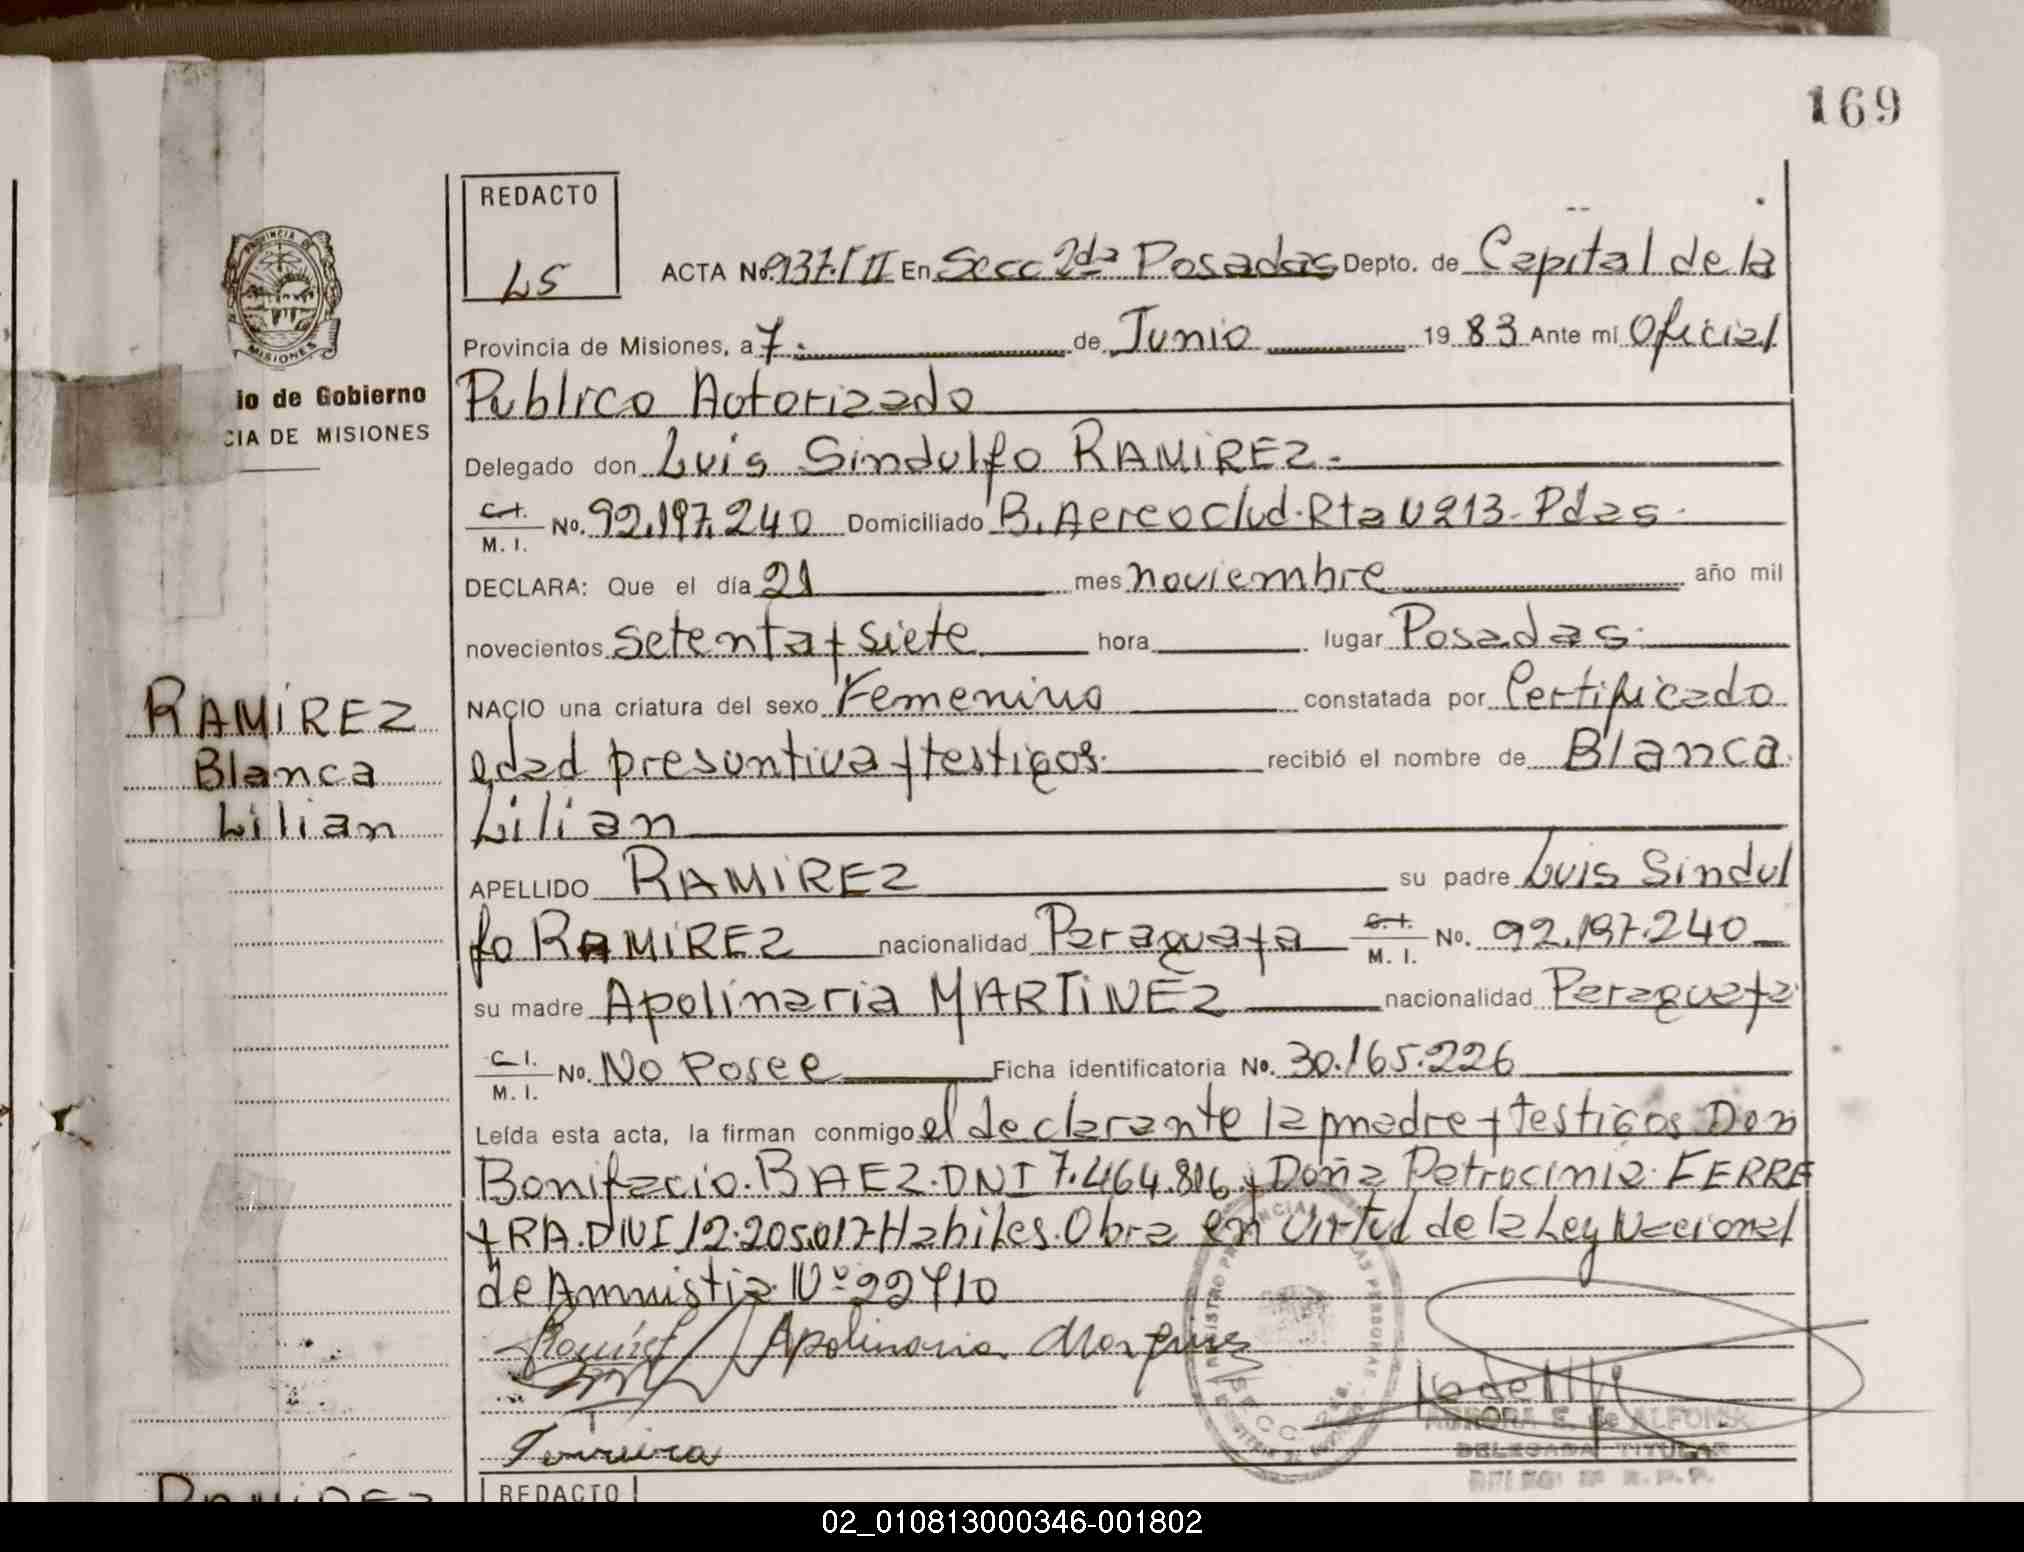 169
REDACTO
LS
ACTA No. 937.T II En Secc 2da Posadas Depto. de Capital de la
Provincia de Misiones, a 7. de Junio 1983 Ante mi Oficial
Publico Autorizado
PROVINCIA DE
MISIONES
io de Gobierno
CIA DE MISIONES
Delegado don Luis Sindulfo RAMIREZ.
C.I. M. I. No. 92.197.240 Domiciliado B. Aereo Clud. Rta Nº 213 - Pdas.
DECLARA: Que el día 21 mes noviembre año mil
novecientos setenta y siete hora lugar Posadas.
NACIO una criatura del sexo Femenino constatada por Certificado
edad presuntiva y testigos. recibió el nombre de Blanca
Lilian
RAMIREZ
Blanca
Lilian
APELLIDO RAMIREZ su padre Luis Sindul
fo RAMIREZ nacionalidad Paraguaya C.I. M. I. No. 92.197.240
su madre Apolinaria MARTINEZ nacionalidad Paraguaya
C I. M. I. No. No Posee Ficha identificatoria No. 30.165.226
Leída esta acta, la firman conmigo el declarante la madre y testigos Don
Bonifacio. BAEZ. DNI 7.464.816 y Doña Petrocinia. FERRE
YRA. DNI 12.205.017 Habiles. Obra en Virtud de la Ley Nacional
de Amnistia Nº 22410
Apolinaria
Ferreira
SECC 2da.
AURORA E. de ALFONSO
DELEGADA TITULAR
REDACTO
RAMIREZ
02_010813000346-001802